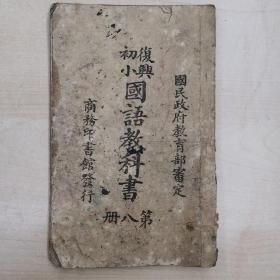 國民政府教育部審定
復興
初小
國語教科書
第八册
商務印書館發行